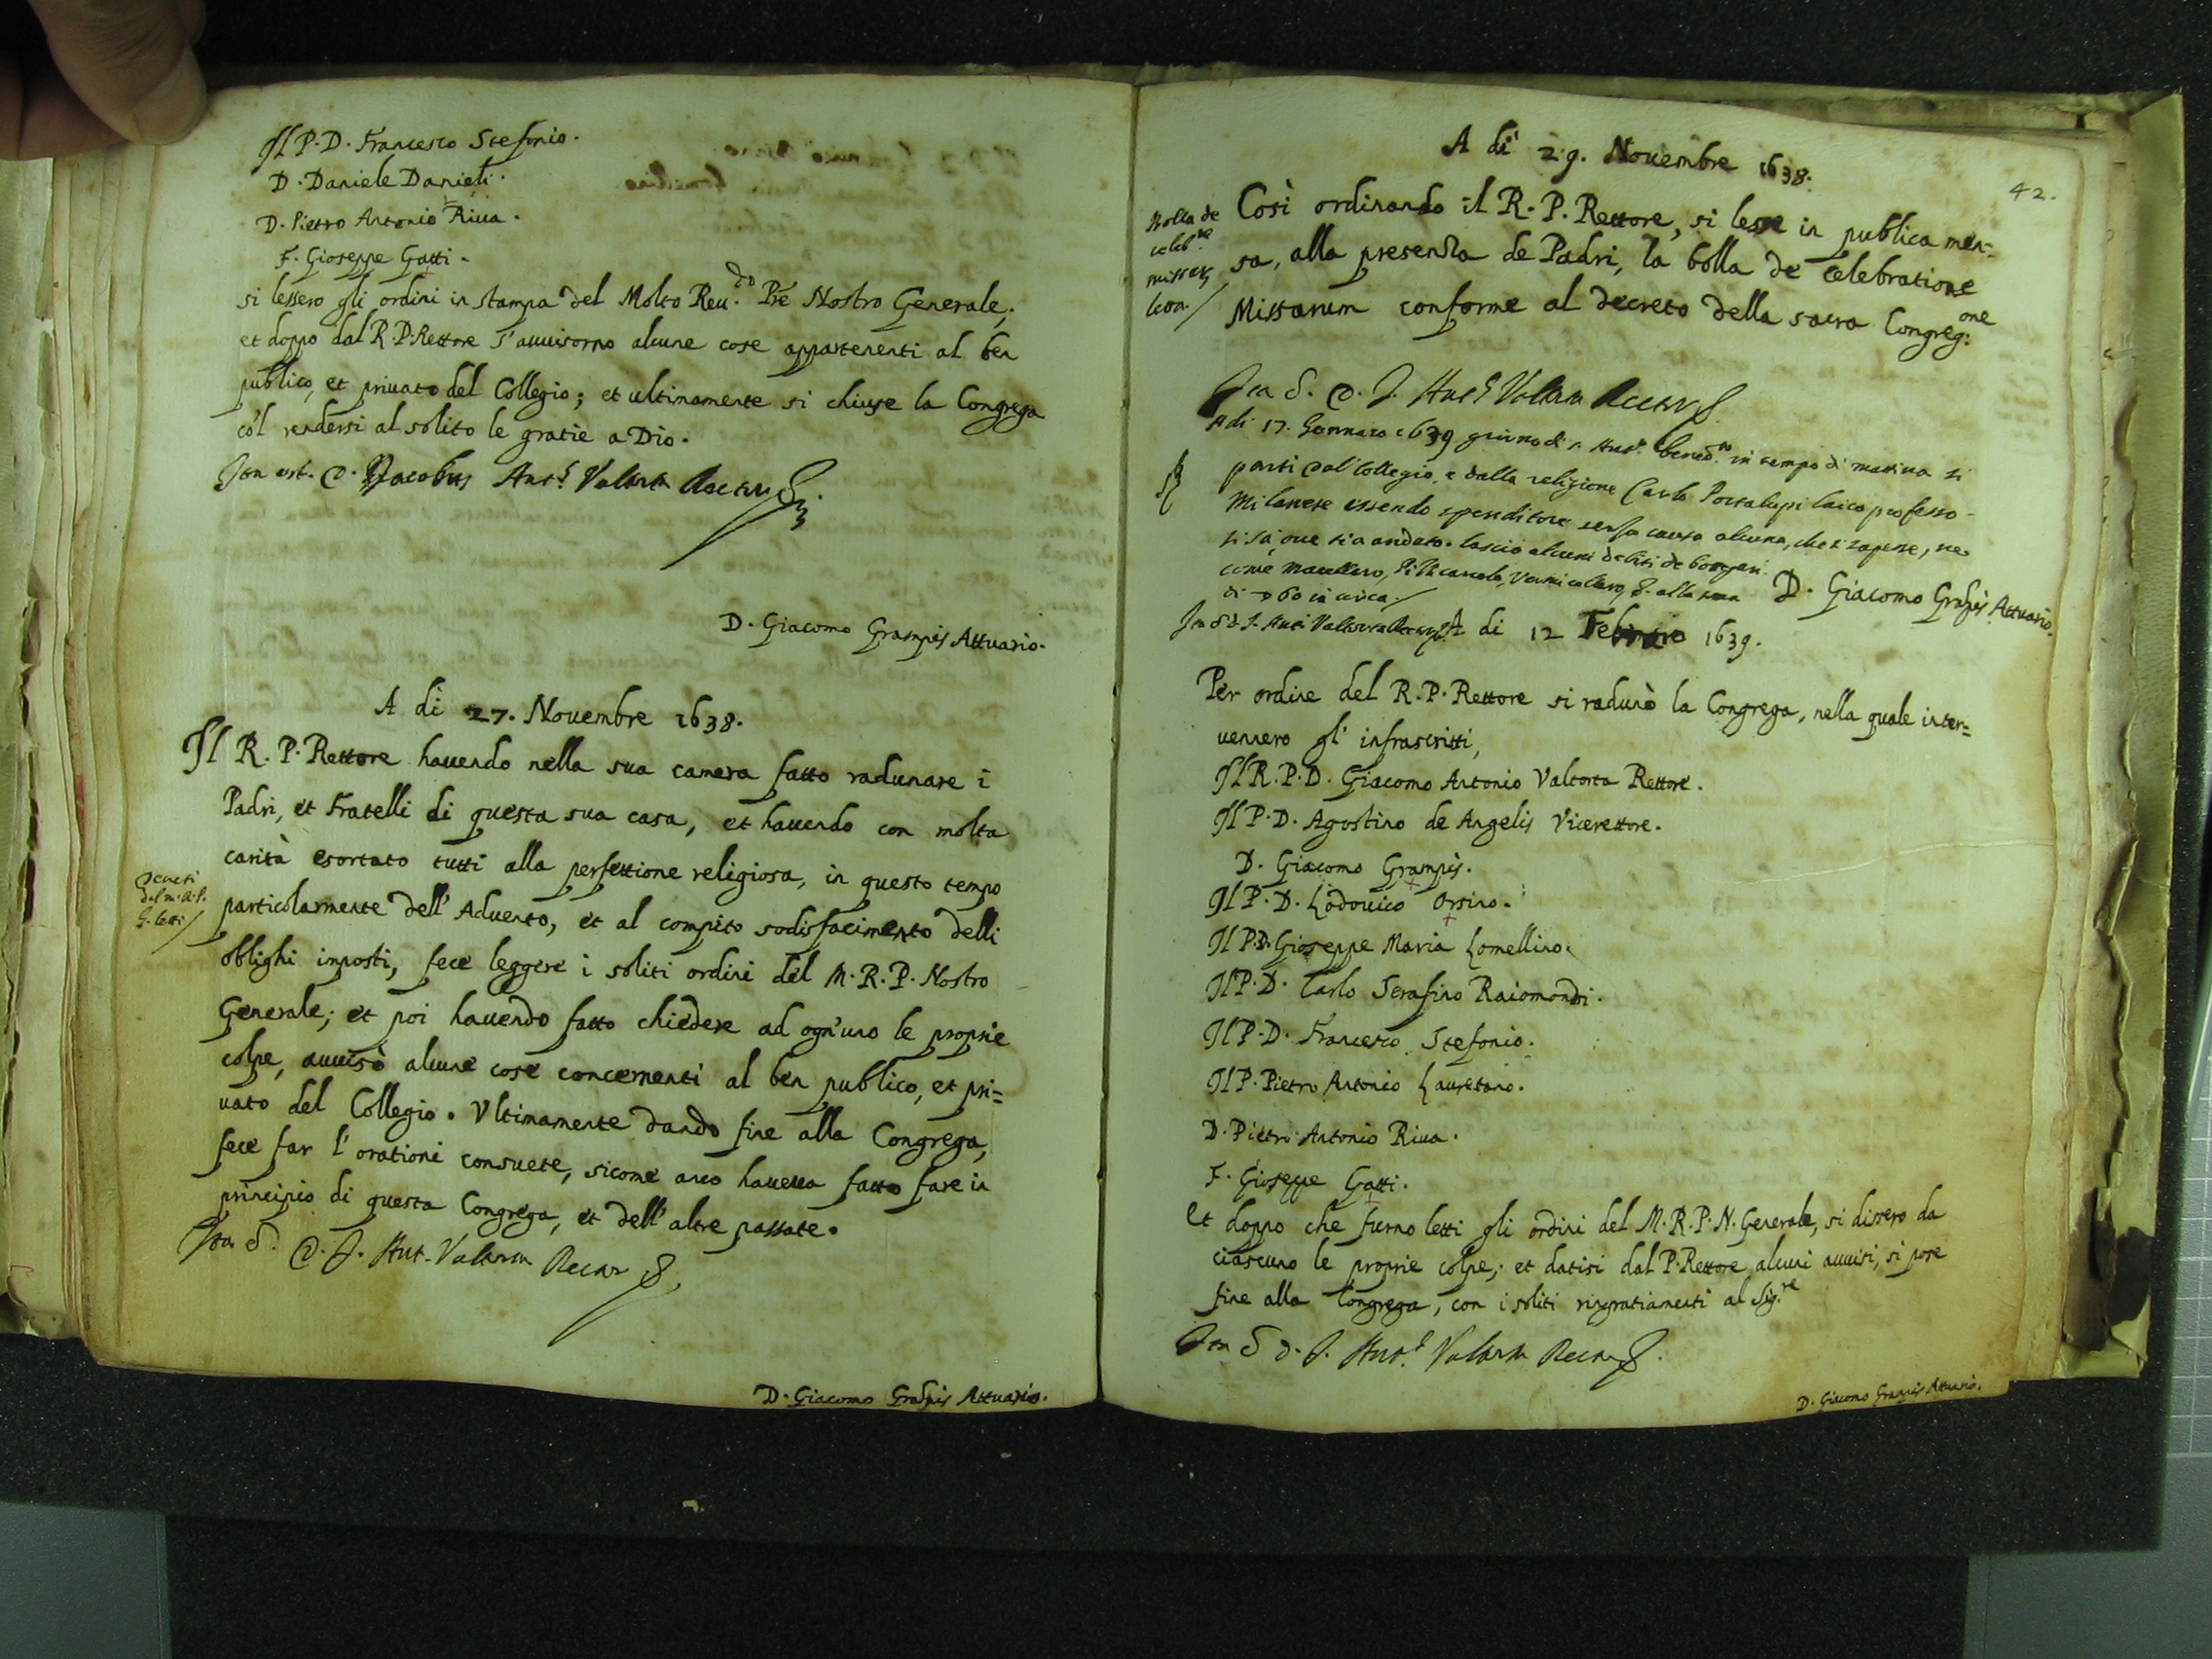 Il P. D. Francesco Stefonio.
D. Daniele Danieli.
D. Pietro Antonio Riua.
F. Gioseppe Gatti.
si lessero gli ordini in stampa del Molto Reu.do Pre Nostro Generale;
et doppo dal R. P. Rettore s'auuisorno alcune cose appartenenti al ben
publico, et priuato del Collegio; et ultimamente si chiuse la Congrega
co'l rendersi al solito le gratie a Dio.
Ita est. D. Jacobus Ant.s Valtorta Rector
D. Giacomo Grampis Attuario.
A di 27. Nouembre 1638.
Il R. P. Rettore hauendo nella sua camera fatto radunare i
Padri, et Fratelli di questa sua casa, et hauendo con molta
carità esortato tutti alla perfettione religiosa, in questo tempo
Decreti
del m. R. P.
G. letti/
particolarmente dell'Aduento, et al compito sodisfacimento delli
oblighi imposti, fece leggere i soliti ordini del M. R. P. Nostro
Generale; et poi hauendo fatto chiedere ad ogn'uno le proprie
colpe, auuisò alcune cose concernenti al ben publico, et pri=
uato del Collegio. Vltimamente dando fine alla Congrega,
fece far l'orationi consuete, sicome anco haueua fatto fare in
principio di questa Congrega, et dell'altre passate.
Ita est. D. J. Ant. Valtorta Rector
D. Giacomo Grapis Attuario.
42.
A di 29. Nouembre 1638.
Bolla de
celeb.ne
missar
letta/
Così ordinando il R. P. Rettore, si lesse in publica men=
sa, alla presenza de Padri, la bolla de celebratione
Missarum conforme al decreto della sacra Congreg.one
Ita est. D. J. Ant.s Valtorta Rector
A di 17. Gennaro 1639 giorno di s. Ant.o in tempo di matina si
parti dal Collegio, e dalla religione Carlo Portalupi laico professo
Milanese essendo spenditore senza causa alcuna, che si sapesse, ne
si sà oue sia andato. lasciò alcuni debiti de
come Macellaro, Vermicellaro, alla
di 60 in circa./
D. Giacomo Grapis Attuario.
Ita est D. J. Ant. Valtorta Rector
A di 12 Febraro 1639.
Per ordine del R. P. Rettore si radunò la Congrega, nella quale inter=
uennero gl'infrascritti,
Il R. P. D. Giacomo Antonio Valtorta Rettore.
Il P. D. Agostino de Angelis Vicerettore.
D. Giacomo Grampis.
Il P. D. Lodouico Orsino.
Il P. D. Gioseppe Maria Lomellino.
Il P. D. Carlo Serafino Raiomondi.
Il P. D. Francesco Stefonio.
Il P. Pietro Antonio Lauretano.
D. Pietro Antonio Riua.
F. Gioseppe Gatti.
Et doppo che furno letti gli ordini del M. R. P. N. Generale, si dissero da
ciascuno le proprie colpe; et datisi dal P. Rettore alcuni auuisi, si pose
fine alla Congrega, con i soliti ringratiamenti al Sig.re
Ita est D. J. Ant.s Valtorta Rector
D. Giacomo Grampis Attuario.